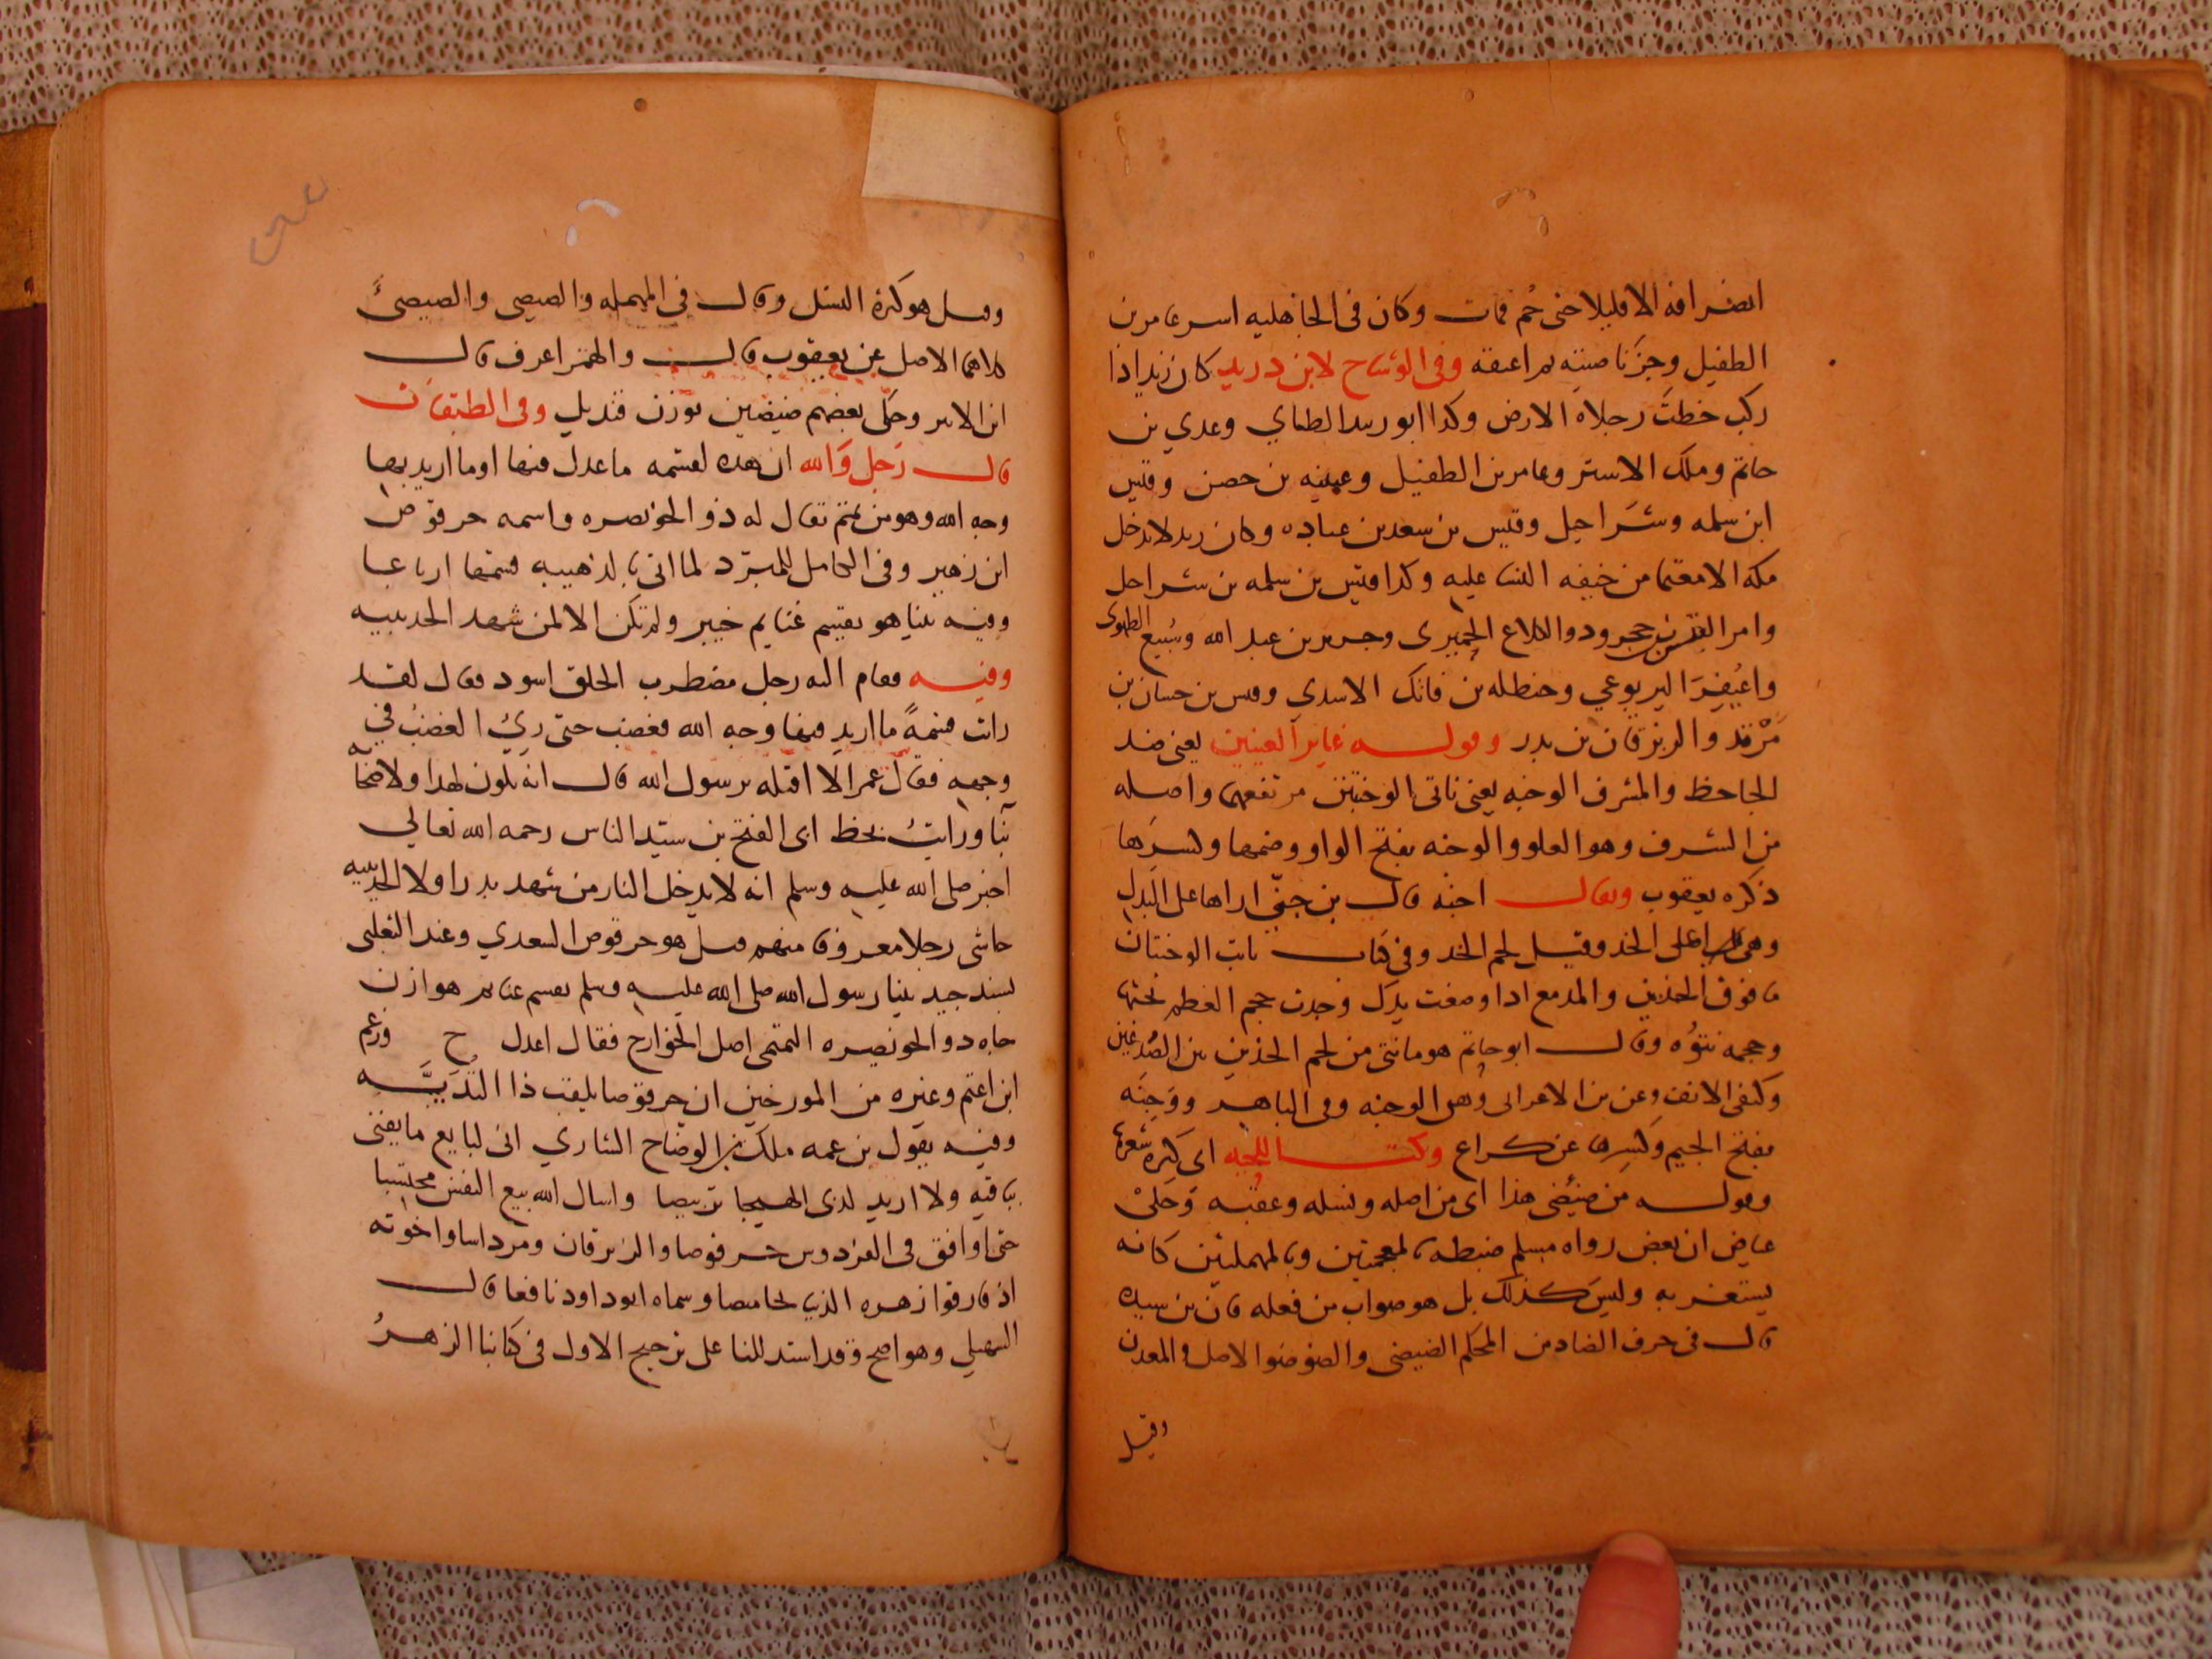 انصرافه الا قليلا حتى حُم فمات وكان فى الجاهليه اسر عامر بن
الطفيل وجزَّ ناصيته ثم اعتقه وفى الوشاح لابن دريد كان زيد اذا
ركب خطتَ رجلاه الارض وكذا ابو زبيد الطاي وعدي بن
حاتم وملك الاشتر وعامر بن الطفيل وعيينه بن حصن وقيس
ابن سلمه وشَراحيل وقيس بن سعد بن عباده وكان زيد لا يدخل
مكه الا معتما من خيفه النسا عليه وكذا قيس بن سلمه بن شراحيل
وامرا القيس بن حجر وذوالكلاع الحِميرى وجرير بن عبد الله وسُبيع الطهوى
واعُيفِرَ اليربوعي وحنطله بن فاتك الاسدي وقيس بن حسان بن
مَرْثد والزبرقان بن بدر وقوله غاير العينين يعنى ضد
الجاحظ والمشرف الوجنه يعنى ناتى الوجنتين مرتفعهما واصله
من الشرف وهو العلو والوجنه بفتح الواو وضمها وكسرها
ذكره يعقوب ويقال اجنه قال بن جنّي اراها على البدل
وهى اعلى الخد وقيل لحم الخد وفى كتاب ثابت الوجنتان
ما فوق الخدين والمدمع اذا وضعت يدك وجدت حجم العظم تحتها
وحجمه نتوُه وقال ابو حاتم هو ما نتى من لحم الخدين بين الصُدغين
وكنفى الانف وعن بن الاعرابى وهى الوجنه وفى الباهر ووَجِنَه
بفتح الجيم وكسرها عن كراع وكث اللحيه اى كثره شعرها
وقوله من ضِئضى هذا اى من اصله ونسله وعقبه وَحكىْ
عياض ان بعض رواه مسلم ضبطه بالمعجمتين وبالمهملتين كانه
يستغربه وليسَ كذلك بل هو صواب من فعله فان بن سيده
قال فى حرف الضاد من المحكم الضيضى والضوضوا الاصل والمعدن
وقيل
وقيل هو كثرة النسل وقال فى المهمله والصيصى والصيصئ
كلاهما الاصل عن يعقوب قال والهمز اعرف قال
ابن الاثير وحكى بعضهم ضيضين بوزن قنديل وفى الطبقات
قال رَجل وَالله ان هذه لقسمه ما عدل فيها او ما اريد بها
وجه الله وهو من تميم يقال له ذو الخويصره واسمه حرقوص
ابن زهير وفى الكامل للمبرّد لما اتى بالذهيبه قسمها ارباعا
وفيه بينا هو يقسم غنايم خيبر ولم تكن الا لمن شهد الحديبيه
وفيه فقام اليه رجل مضطرب الخلق اسود فقال لقد
رايت قسمهً ما اريد فيها وجه الله فغضب حتى رِيَُ الغضبُ في
وجهه فقال عمر الا اقتله يرسول الله قال انه يكون لهذا ولاضحآبه
نَبَا ورايتُ بخظ ابى الفتح بن سيّد الناس رحمه الله تعالى
اخبر صلى الله عليه وسلم انه لا يدخل النار من شهد بدرا ولا الحديبيه
حاشى رجلا معروفا منهم قيل هو حرقوص السعدي وعند الثعلبى
بسند جيد بينا رسول الله صلى الله عليه وسلم يقسم غنايم هوازن
جاه ذو الخويصره التميمى اصل الخوارج فقال اعدل ح وزعم
ابن اعثم وغيره من المورخين ان حرقوصا يلقب ذا الثديَّه
وفيه يقول بن عمه ملك بن الوضاح الشاري انى لبايع ما يفنى
بباقيه ولا اريد لذى الهيجا تربيصا واسال الله بيع النفس محتسبا
حتى اوافق فى الفردوس حرقوصا والزبرقان ومرداسا واخوته
اذ فارقوا زهره الدنيا مخاميصا وسماه ابو داود نافعا قال
السهيلي وهو اصح وقد استدللنا على ترجيح الاول فى كتابنا الزهرُ